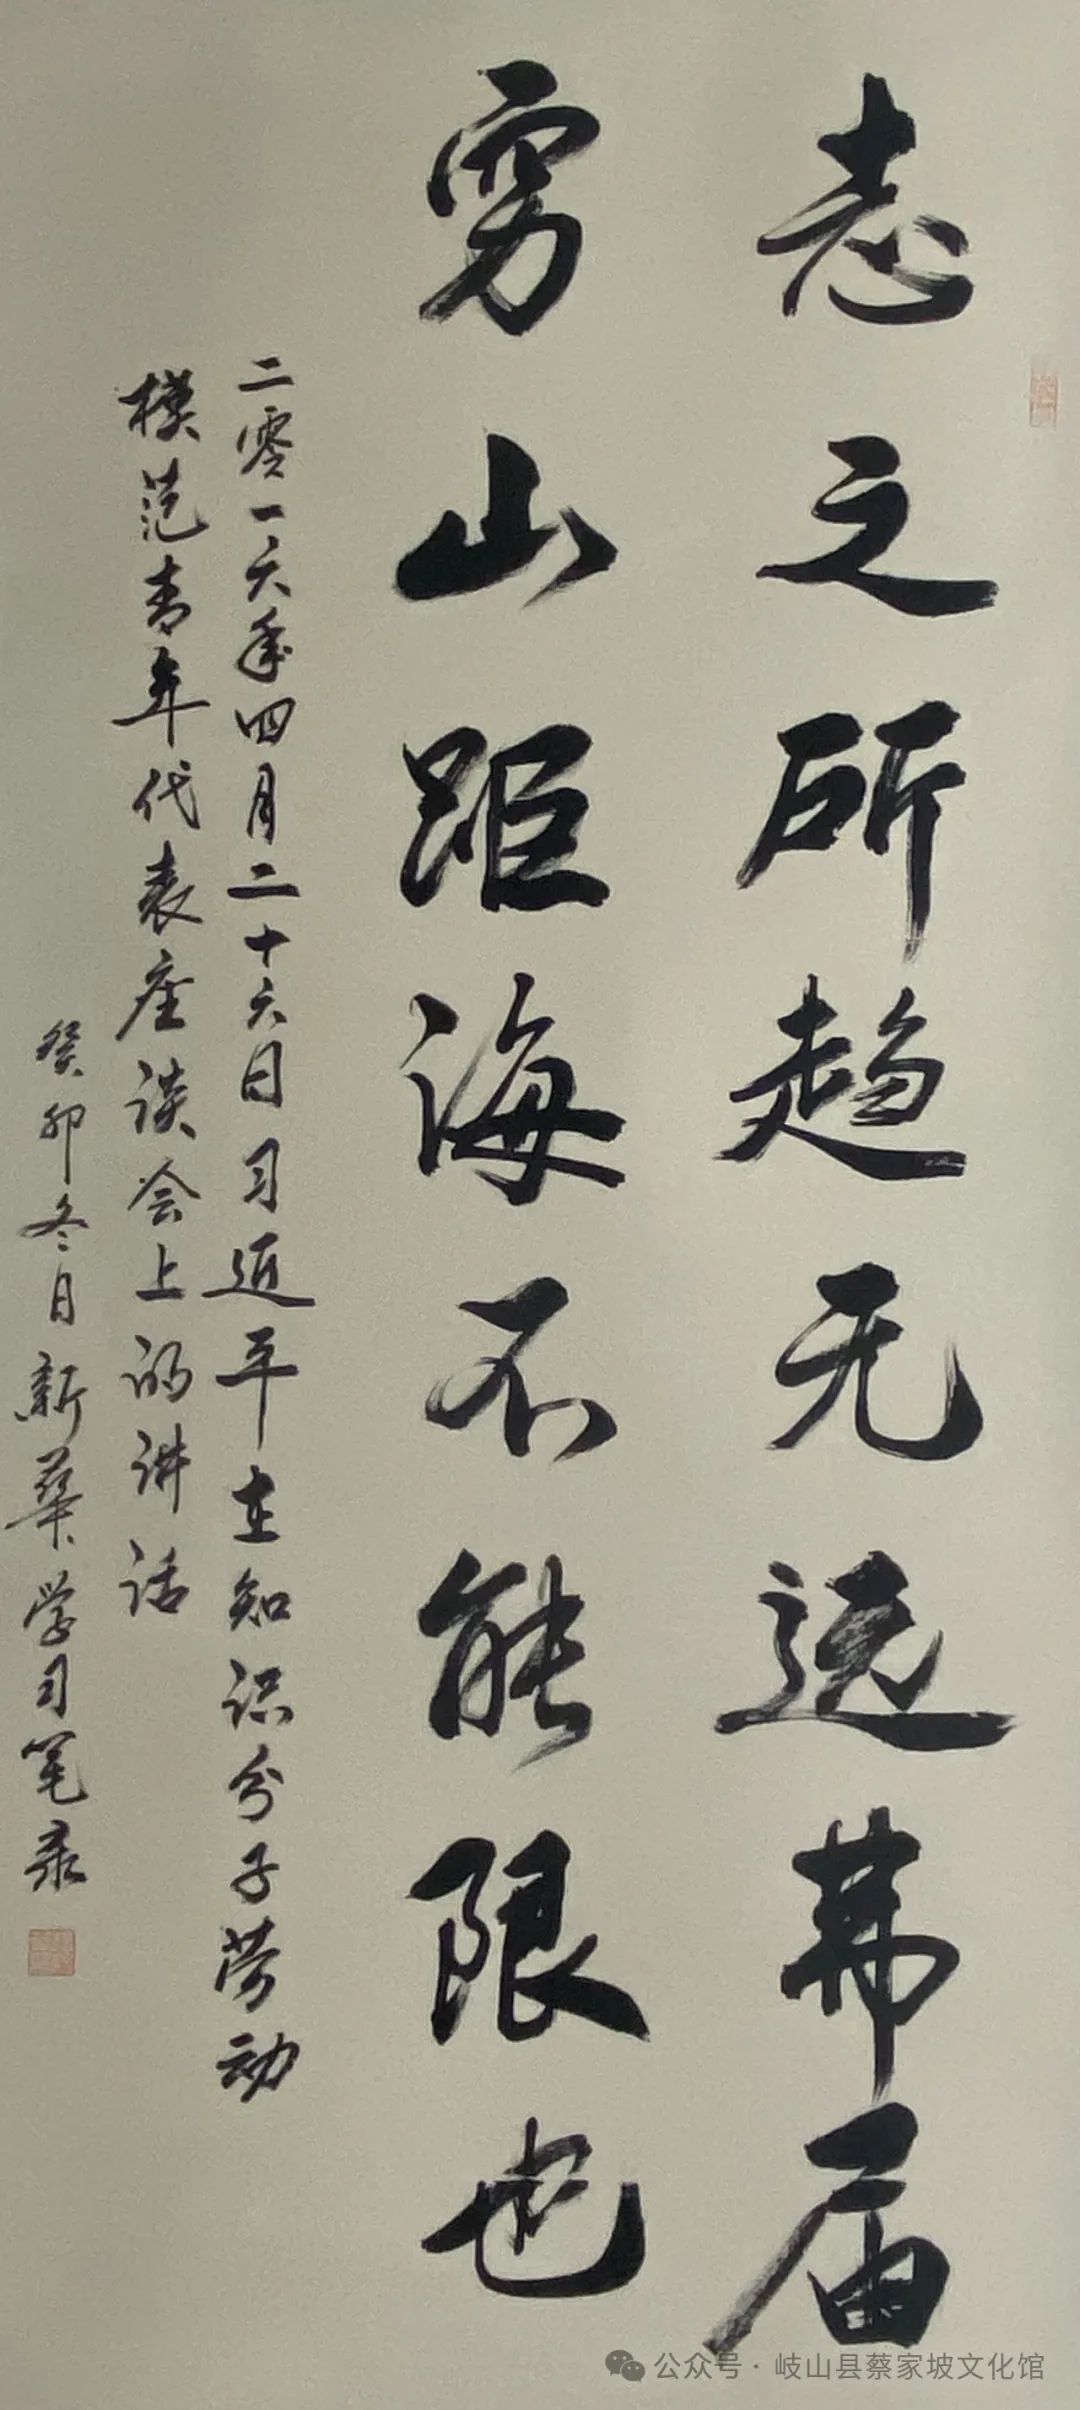 志之所趋无远弗届
穷山距海不能限也
二零一六年四月二十六日习近平在知识分子劳动
模范青年代表座谈会上的讲话
癸卯冬日新华学习笔录
公众号·岐山县蔡家坡文化馆